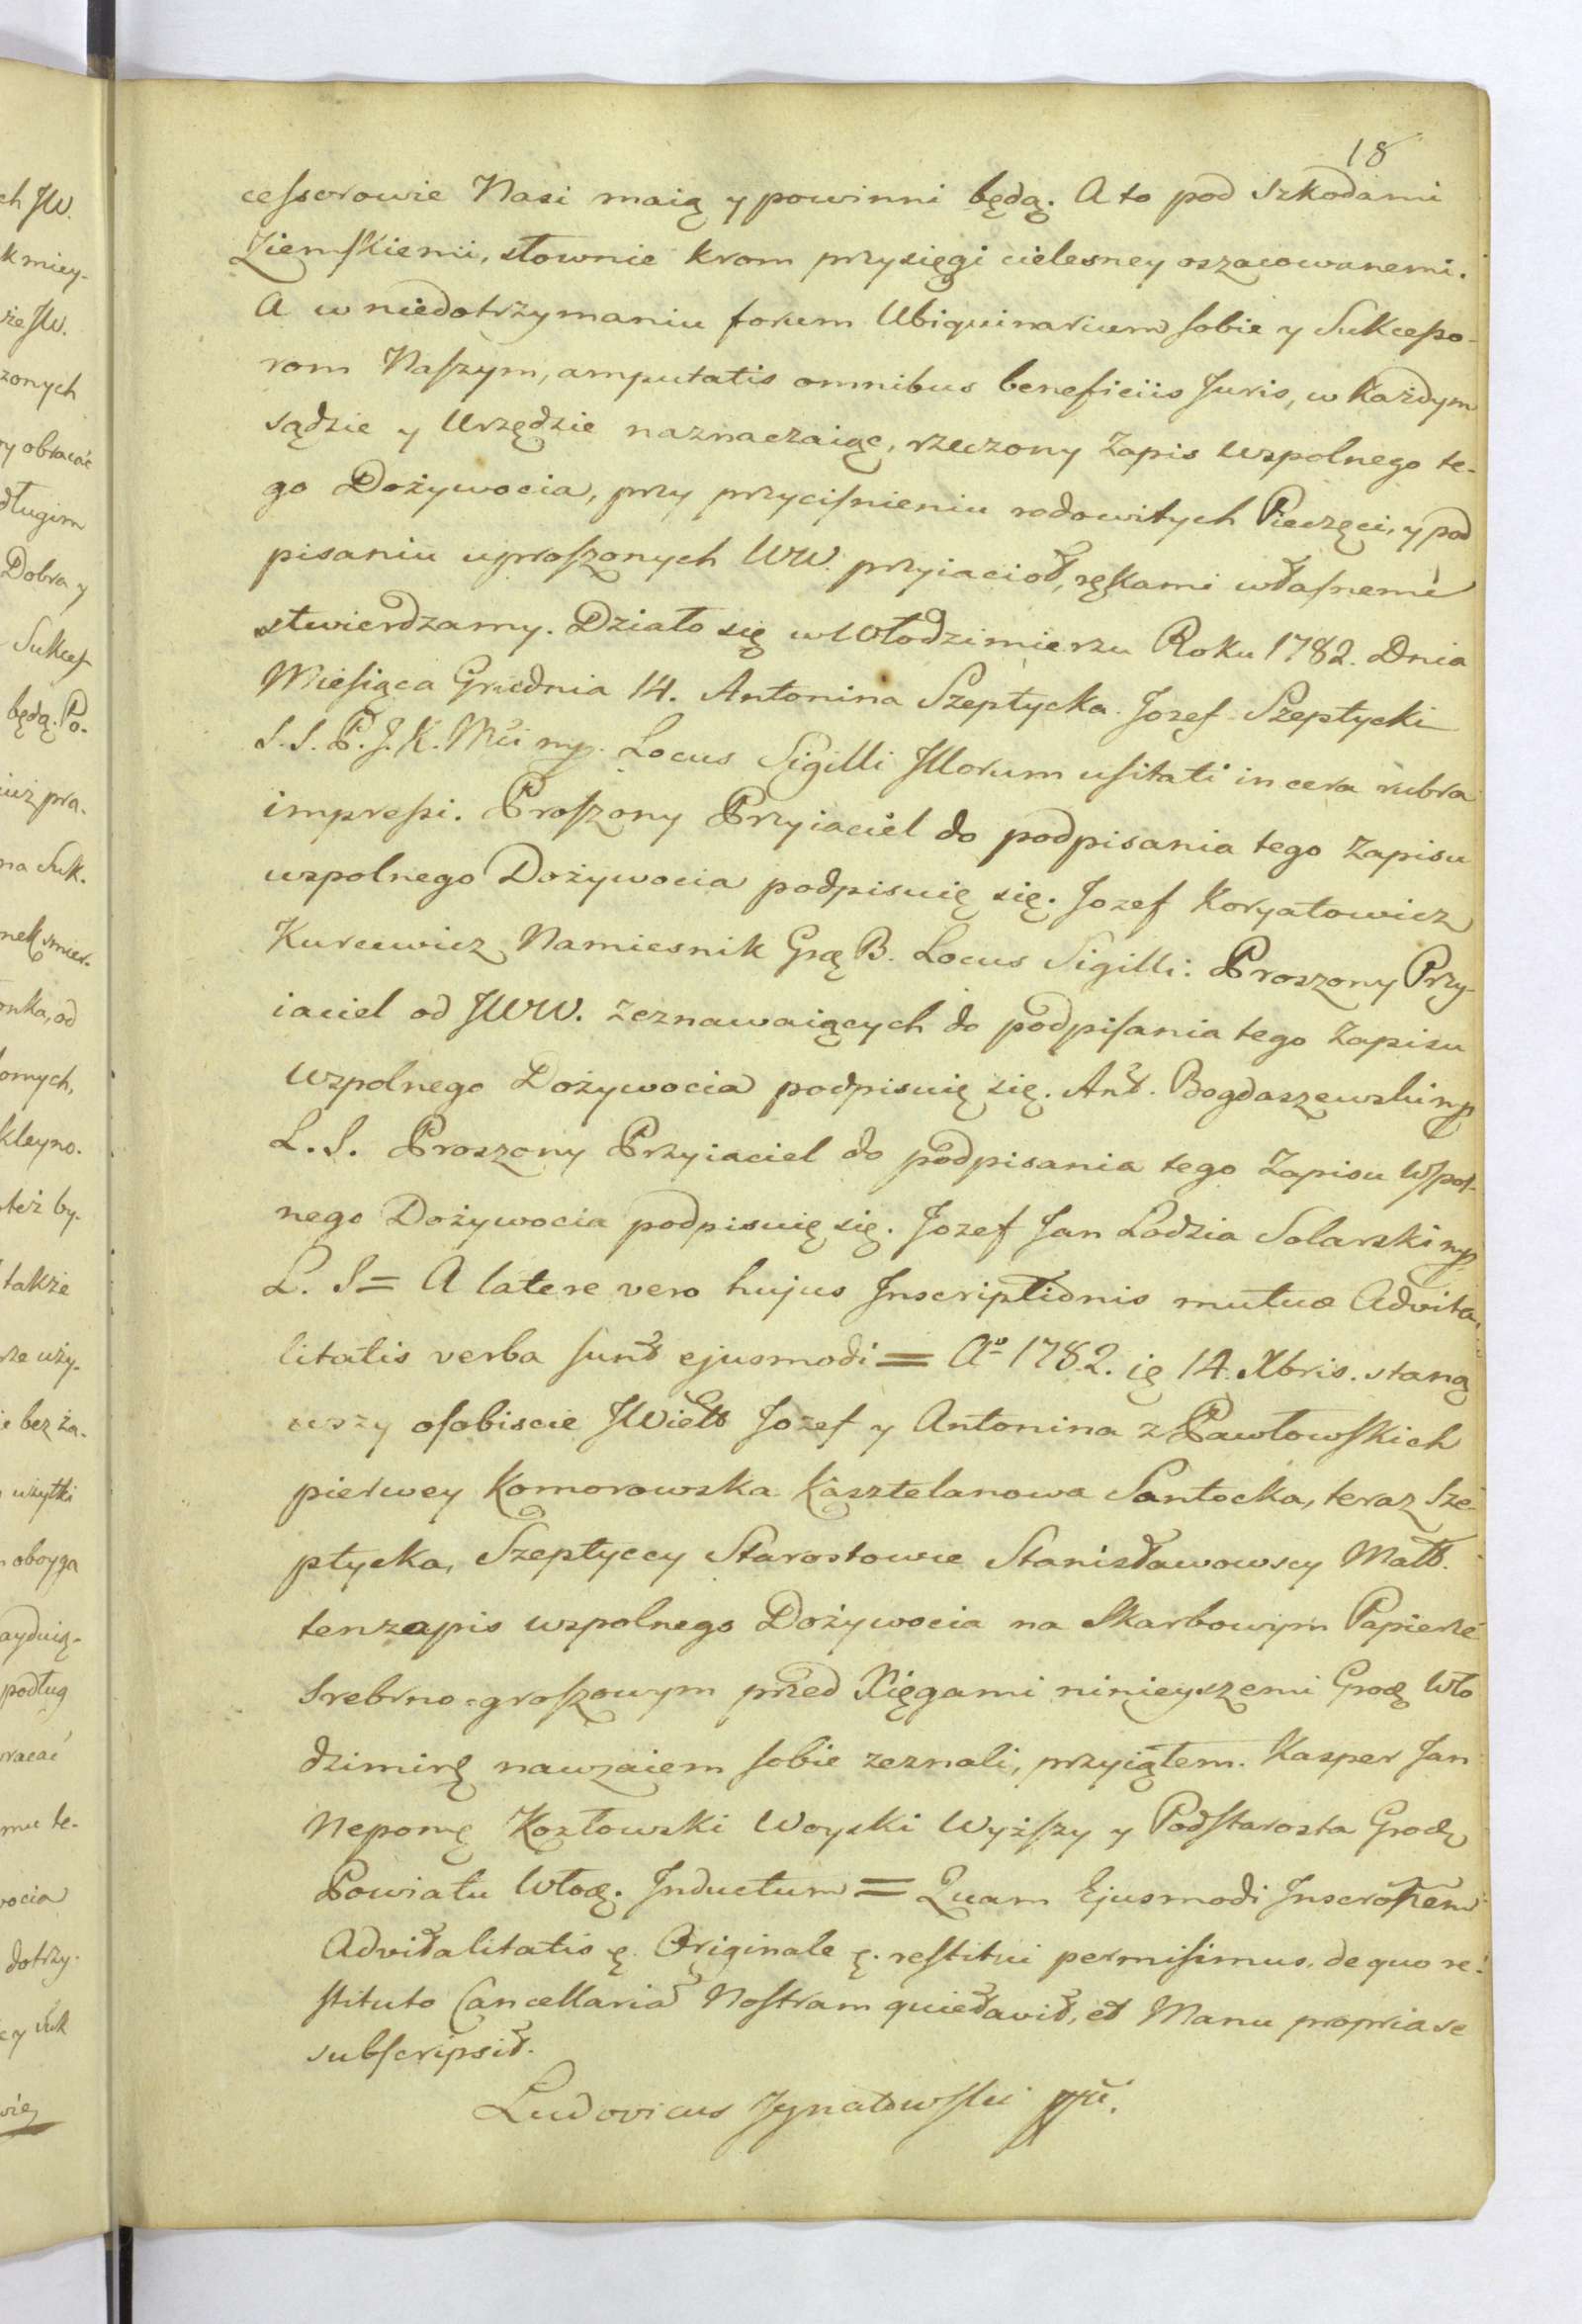 18
cessorowie Nasi maią y powinni będą. A to pod Szkodami
Ziemskiemi, słownie krom przysięgi cielesney oszacowanemi.
A w niedotrzymaniu forum Ubiquinarium sobie y Sukcesso-
rom Naszym, amputatis omnibus beneficiis Juris, w każdym
sądzie y Urzędzie naznaczaiąc, rzeczony Zapis wspolnego te-
go Dożywocia, przy przycisnieniu rodowitych Pieczęci, y pod
pisaniu uproszonych WW. przyiacioł, rękami własnemi
stwierdzamy. Działo się w Włodzimierzu Roku 1782. Dnia
Miesiąca Grudnia 14. Antonina Szeptycka. Jozef Szeptycki
S. S. P. J. K. Mci mp. Locus Sigilli Illorum usitati in cera rubra
impressi. Proszony Przyiaciel do podpisania tego Zapisu
wspolnego Dożywocia podpisuię się. Jozef Koryatowicz
Kurcewicz Namiesnik Grę B. Locus Sigilli: Proszony Przy-
iaciel od JWW. zeznawaiących do podpisania tego Zapisu
Wspolnego Dożywocia podpisuię się. Ant. Bogdaszewski mp
L. S. Proszony Przyiaciel do podpisania tego Zapisu Wspol-
nego Dożywocia podpisuię się. Jozef Jan Lodzia Solarski mp
L. S = A latere vero hujus Inscriptionis mutuæ Advita-
litatis verba sunt ejusmodi = Aº 1782. ię 14. Xbris. staną
wszy osobiscie JWielb Jozef y Antonina z Pawłowskich
pierwey Komorowska Kasztelanowa Santocka, teraz Sze-
ptycka, Szeptyccy Starostowie Stanisławowscy Małt.
ten zapis wspolnego Dożywocia na Skarbowym Papierze
Srebrno-groszowym przed Xięgami ninieyszemi Grodę Wło
dzimirę nawzaiem sobie zeznali, przyiąłem. Kasper Jan
Nepomę Kozłowski Woyski Wyższy y Podstarosta Grodę
Powiatu Włodę. Inductum = Quam Ejusmodi Inscrõnem
Advitalitatis ę. Originale ę. restitui permisimus, de quo re-
stituto Cancellariam Nostram quietavit, et Manu propria se
subscripsit.
Ludovicus Ignatowski